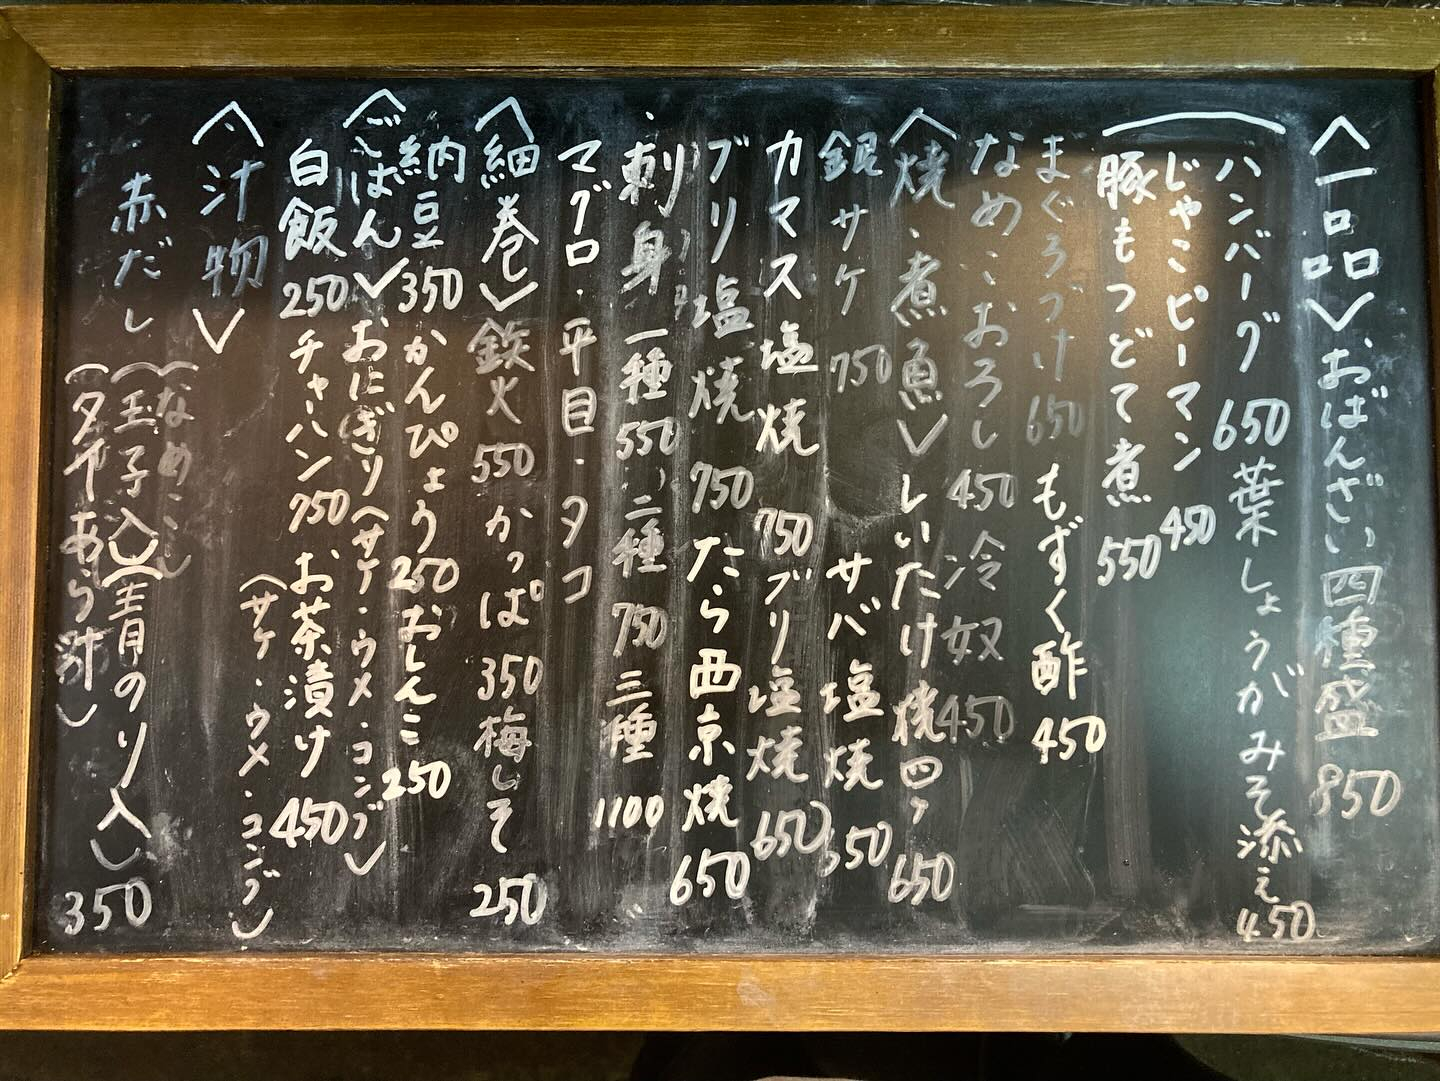 〈一品〉おばんざい四種盛 850
ハンバーグ 650 葉しょうがみそ添え 450
じゃこピーマン 450
豚もつどて煮 550
まぐろづけ 650 もずく酢 450
なめこおろし 450 冷奴 450
〈焼・煮魚〉しいたけ焼四ヶ 650
銀サケ 750 サバ塩焼 550
カマス塩焼 750 ブリ塩焼 650
ブリ塩焼 750 たら西京焼 650
刺身 一種 550 二種 750 三種 1100
マグロ・平目・タコ
〈細巻〉鉄火 550 かっぱ 350 梅しそ 250
納豆 350 かんぴょう 250 おしんこ 250
〈ごはん〉おにぎり(サケ・ウメ・コンブ)
白飯 250 チャーハン 750 お茶漬け 450
(サケ・ウメ・コンブ)
〈汁物〉
赤だし(なめこ)
(玉子入)(青のり入)
(タイあら汁) 350